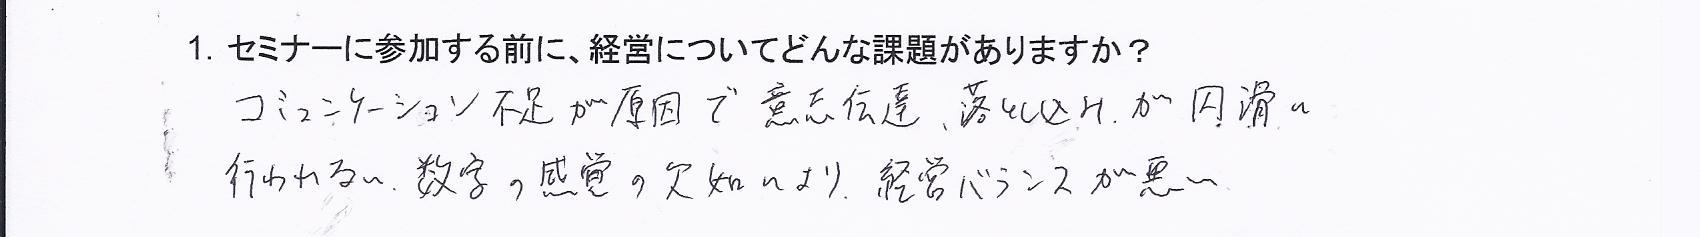 1. セミナーに参加する前に、経営についてどんな課題がありますか？
コミュニケーション不足が原因で意志伝達、落とし込みが円滑に
行われない、数字の感覚の欠如により、経営バランスが悪い